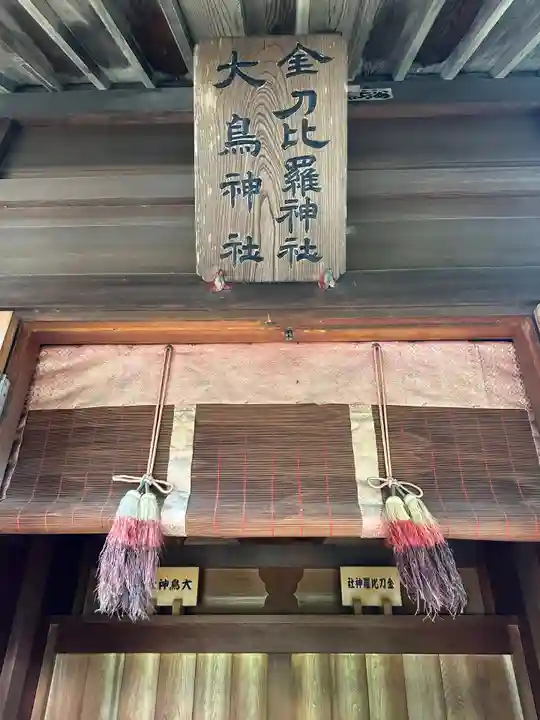 金刀比羅神社
大鳥神社
金刀比羅神社
大鳥神